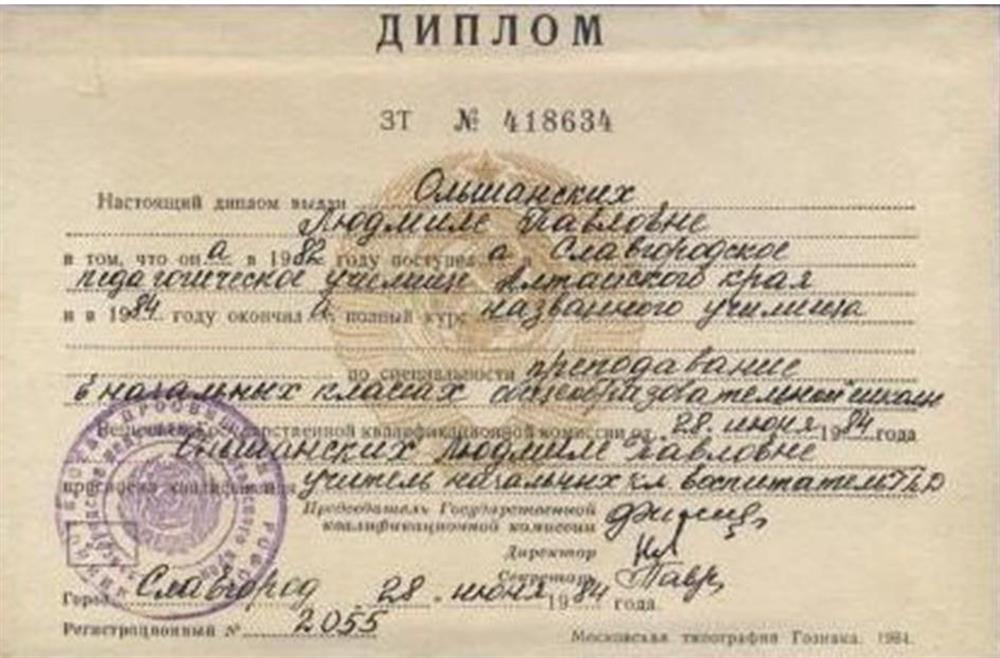 ДИПЛОМ
ЗТ № 418634
Настоящий диплом выдан Ольшанских
Людмиле Павловне
в том, что он а в 1982 году поступил а в Славгородское
педагогическое училище Алтайского края
и в 1984 году окончил а полный курс названного училища
по специальности преподавание
в начальных классах общеобразовательной школы
Решением Государственной квалификационной комиссии от 28 июня 1984 года
Ольшанских Людмиле Павловне
присвоена квалификация учитель начальных кл воспитатель ГПД
Председатель Государственной
квалификационной комиссии
Директор
Секретарь
Город Славгород 28 июня 1984 года.
Регистрационный № 2055
Московская типография Гознака. 1984.